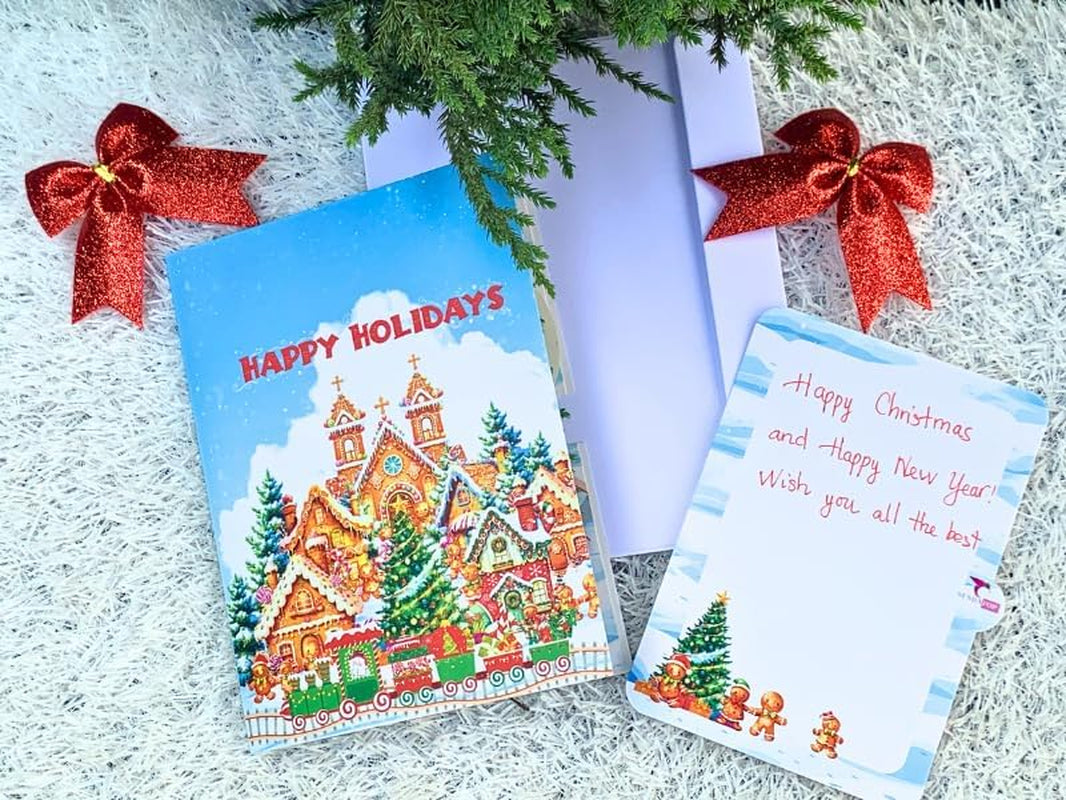 HAPPY HOLIDAYS
Happy Christmas
and Happy New Year!
Wish you all the best